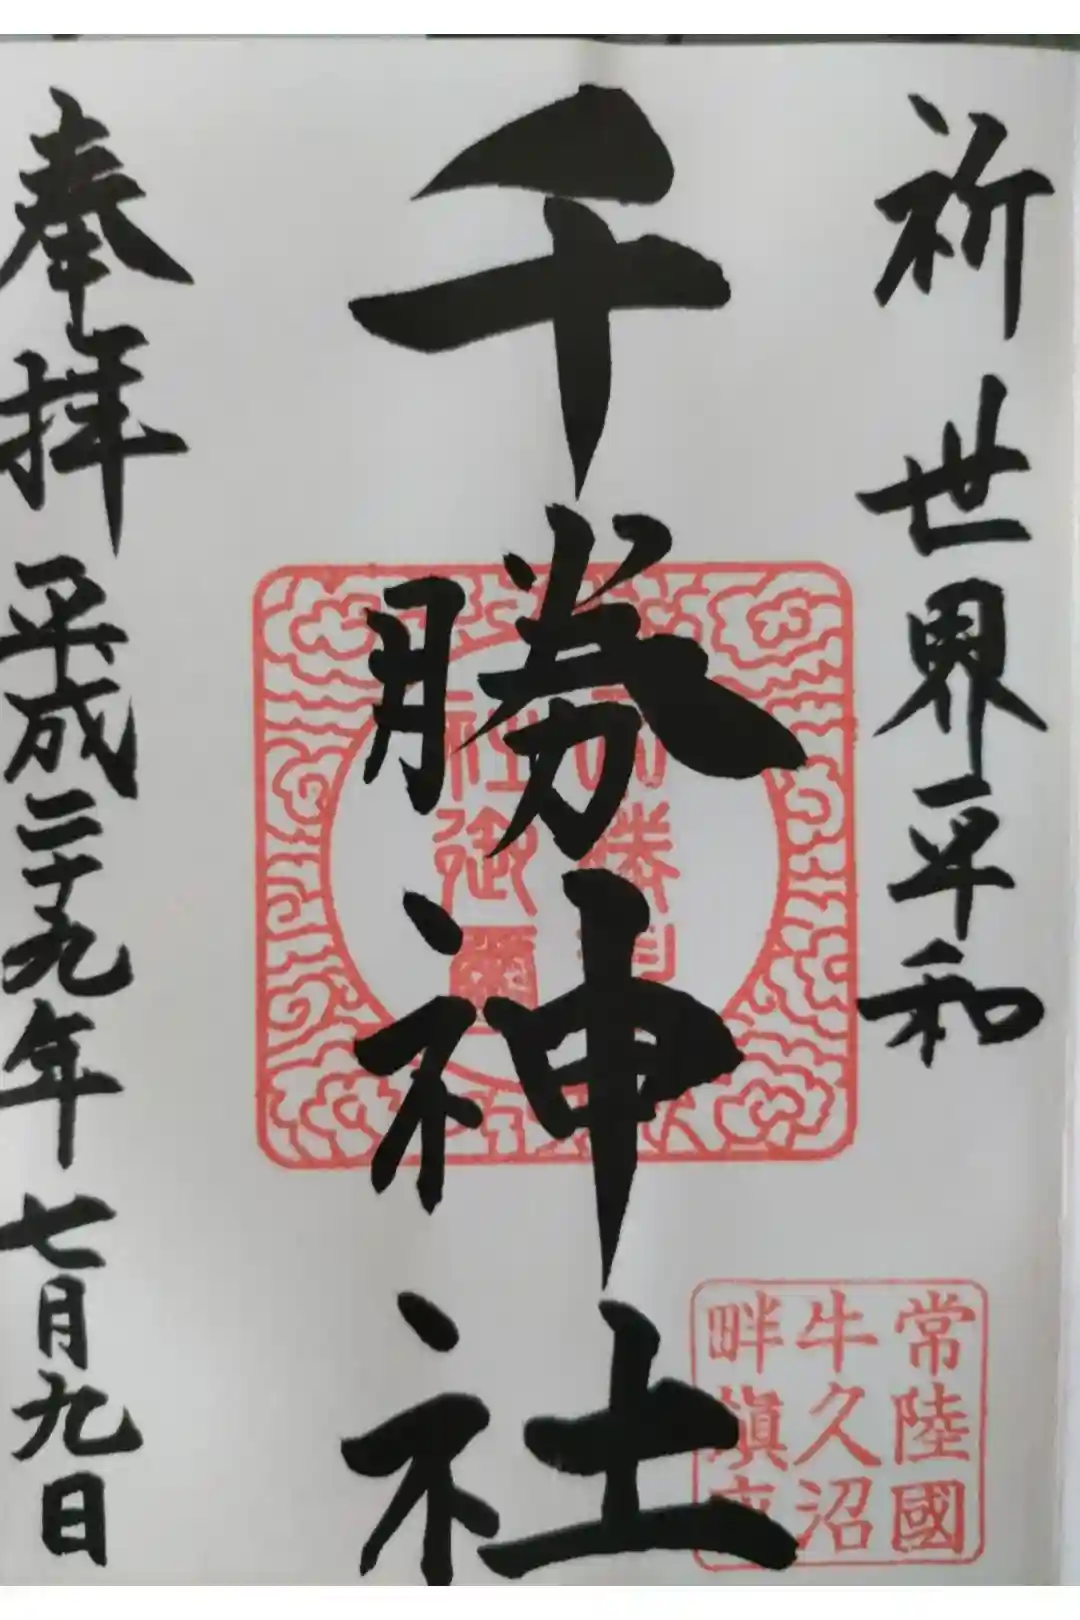 祈世界平和
千勝神社
奉拝 平成二十九年七月九日
勝
社御璽
常陸國
牛久沼
畔鎮座